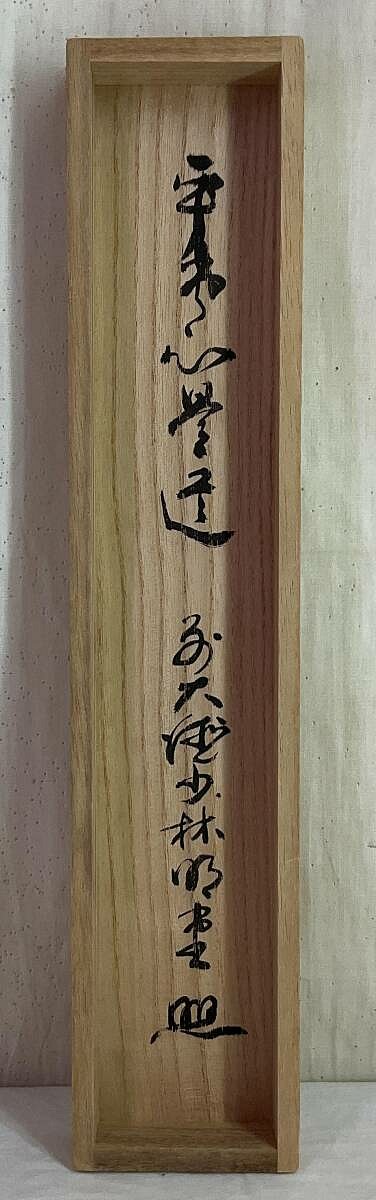 平常心是道　前大徳少林明堂